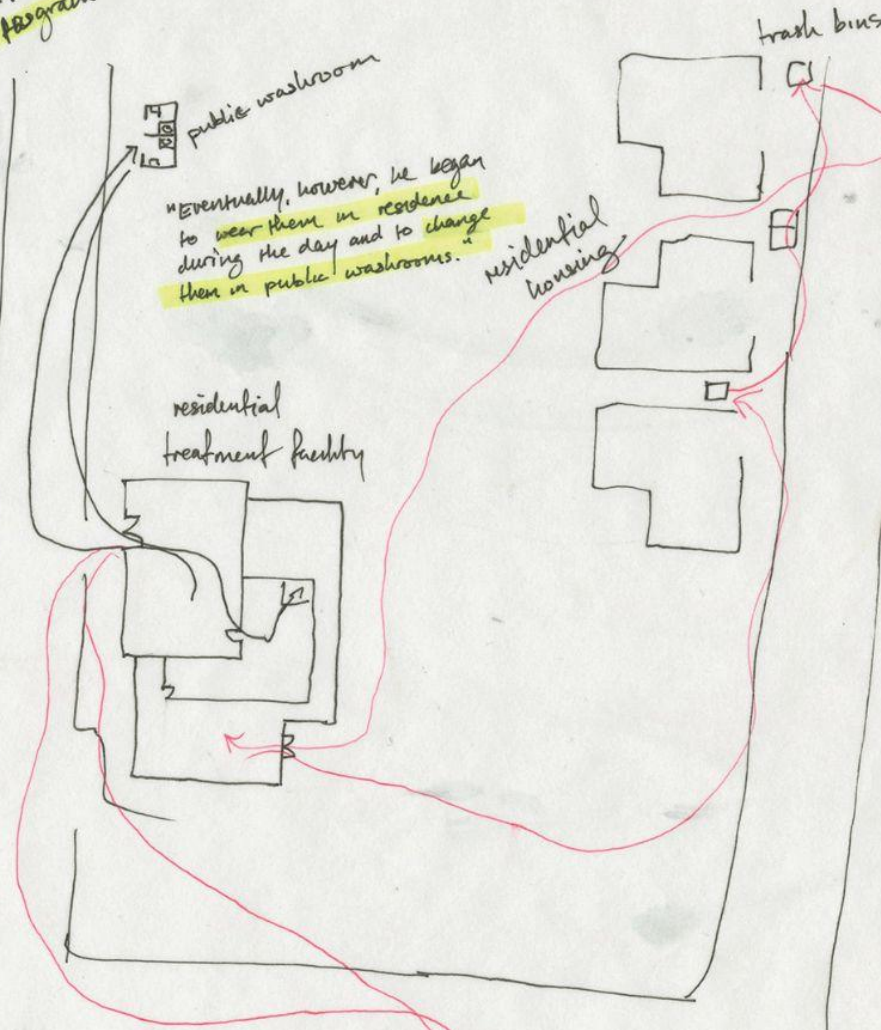 trash bins
public washroom
"Eventually, however, he began
to wear them in residence
during the day and to change
them in public washrooms."
residential
housing
residential
treatment facility